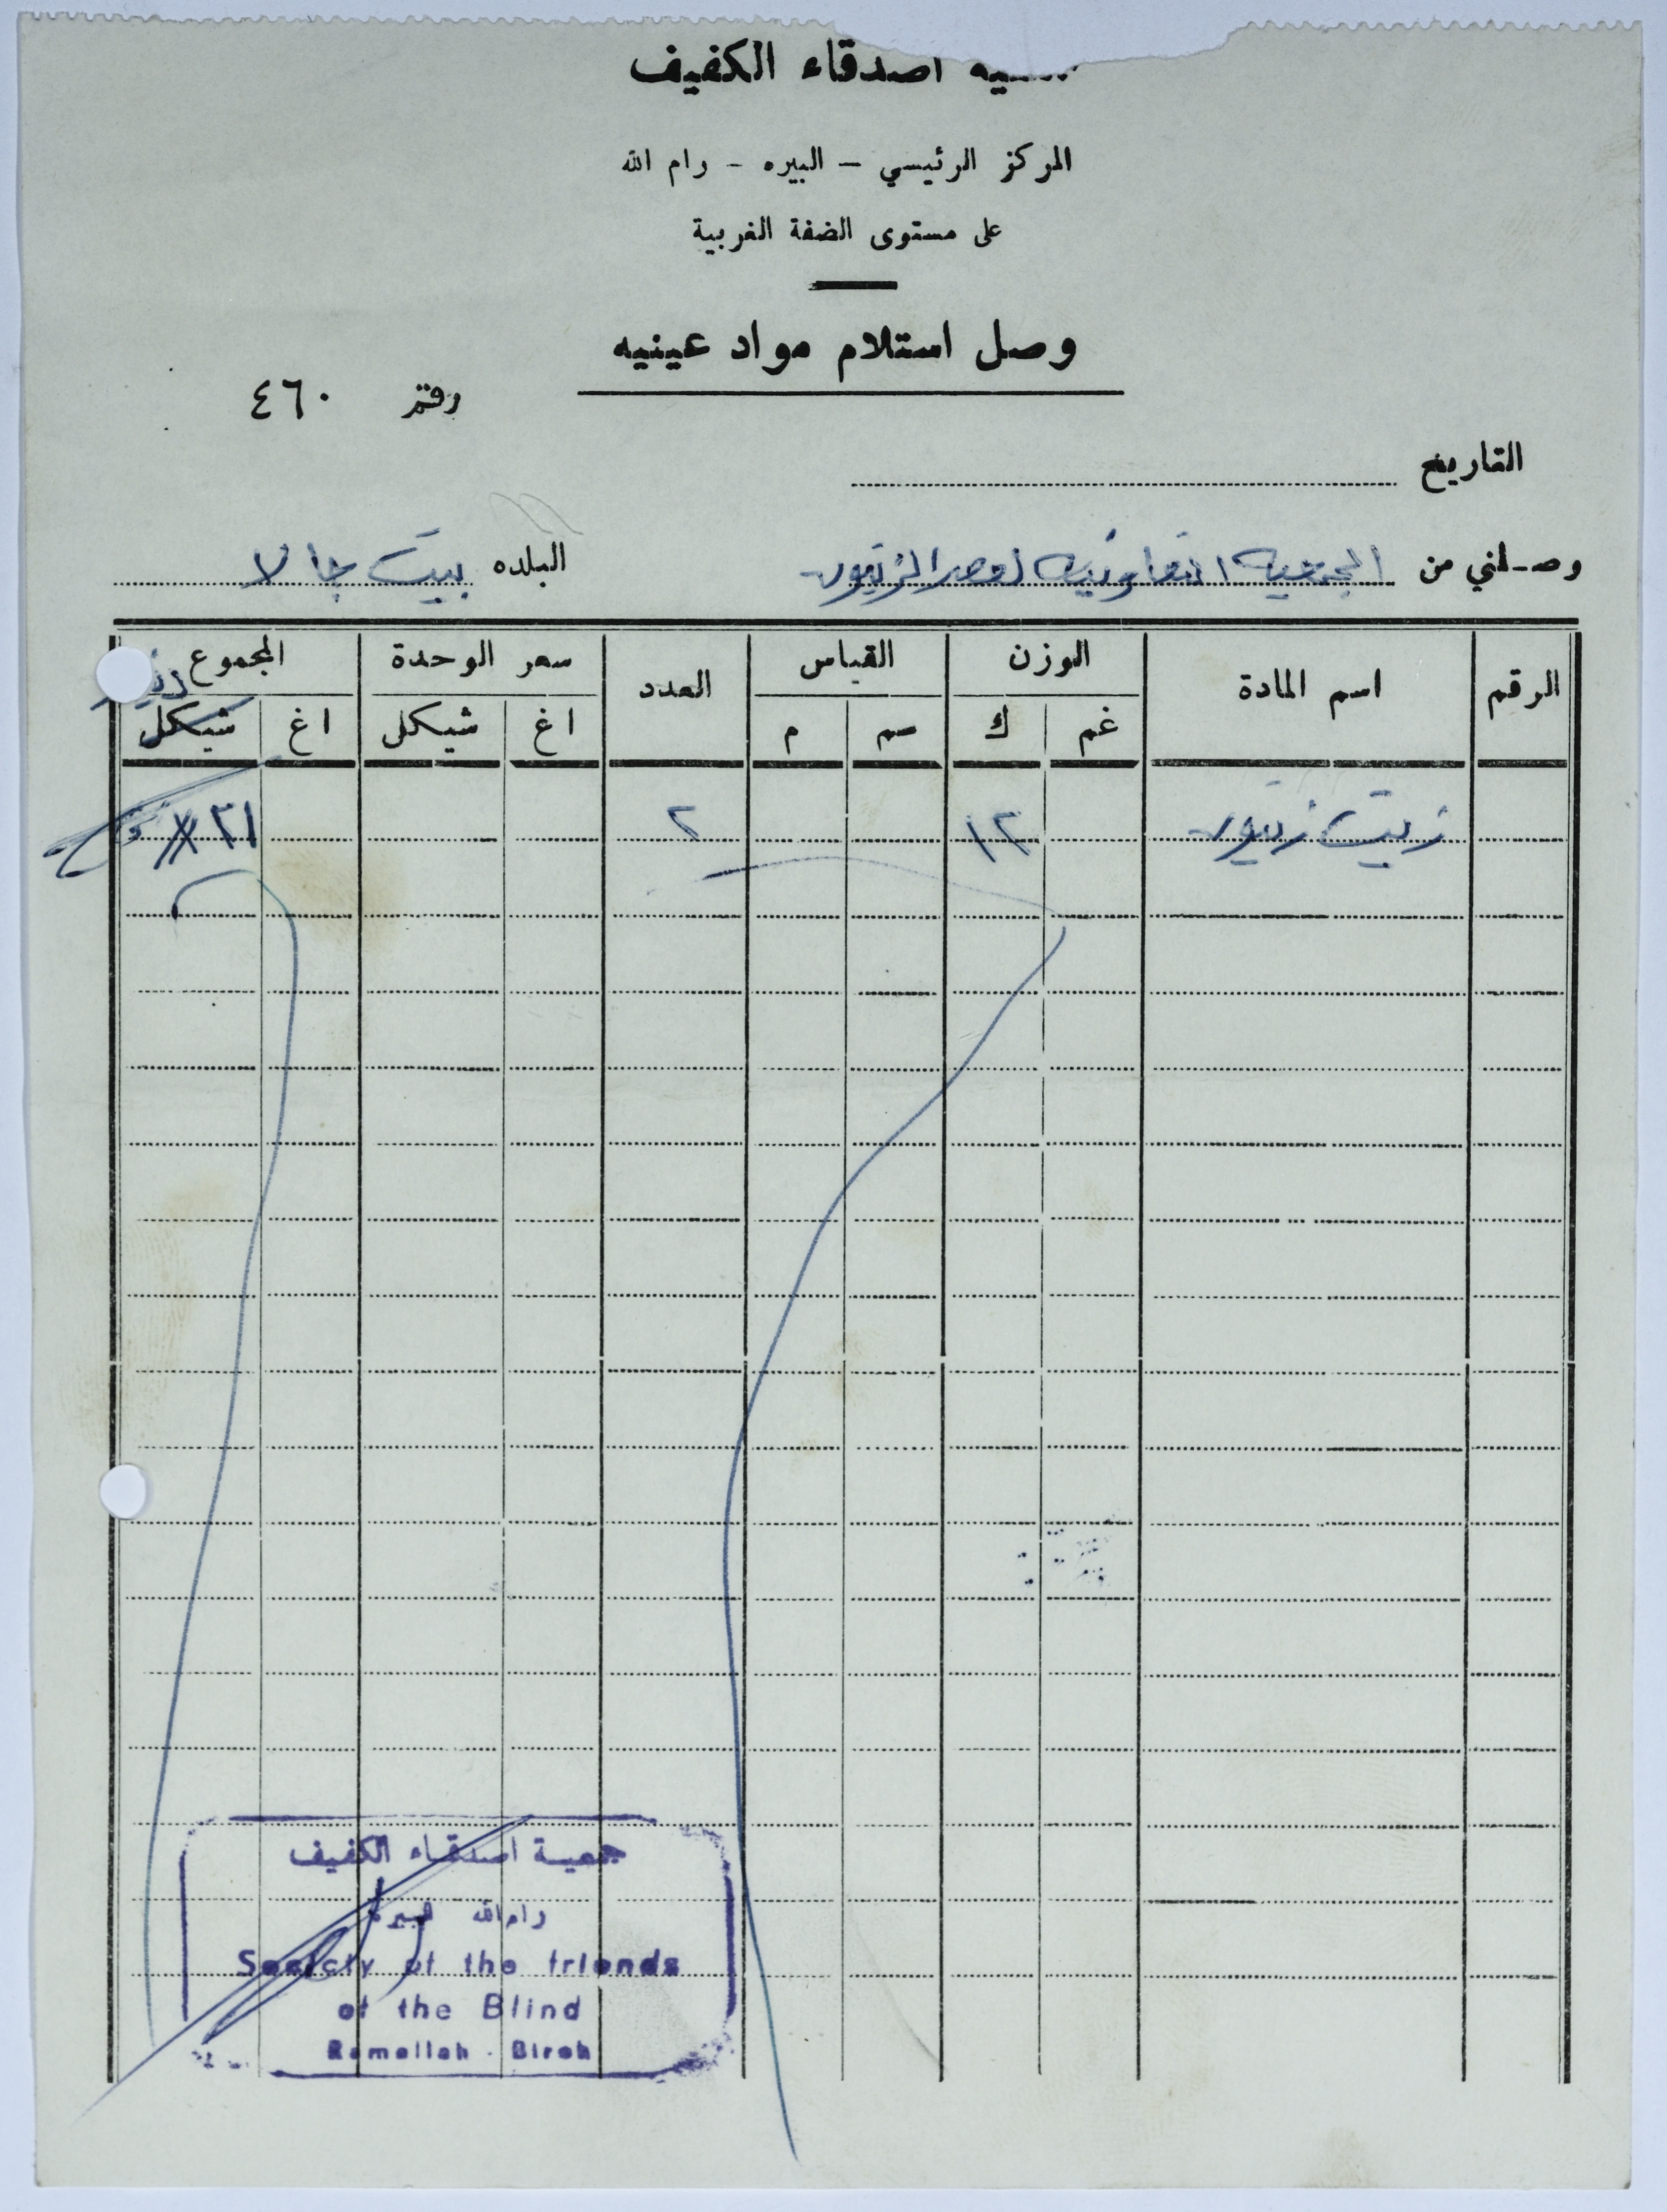 اصدقاء الكفيف
المركز الرئيسي – البيره – رام الله
على مستوى الضفة الغربية
وصل استلام مواد عينيه
رقم ٤٦٠
التاريخ
وصلني من الجمعيه التعاونيه لعصر الزيتون البلده بيت جالا
الرقم اسم المادة الوزن القياس العدد سعر الوحدة المجموع
غم ك سم م اغ شيكل اغ شيكل
زيت زيتون ١٢ ٢ ٢١
جمعية اصدقاء الكفيف
رام الله البيرة
Society of the friends
of the Blind
Ramallah - Bireh